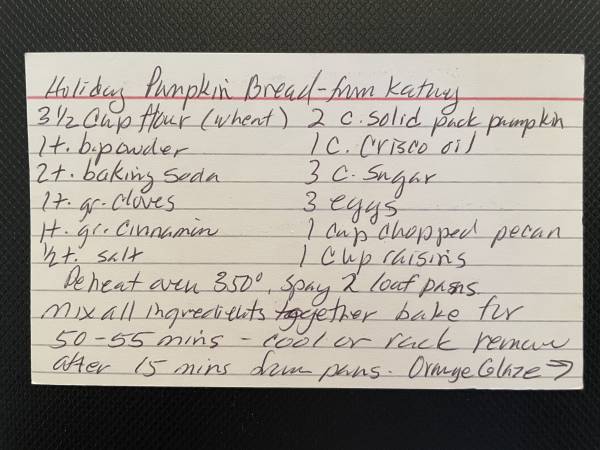 Holiday Pumpkin Bread - from Kathy
3 1/2 Cup flour (wheat) 2 c. solid pack pumpkin
1 t. b. powder 1 C. Crisco oil
2 t. baking soda 3 C. Sugar
1 t. gr. cloves 3 eggs
1 t. gr. cinnamin 1 cup chopped pecan
1/2 t. salt 1 Cup raisins
Peheat oven 350°. Spay 2 loaf pans.
Mix all ingredients together bake for
50-55 mins - cool or rack remove
after 15 mins from pans. Orange Glaze →